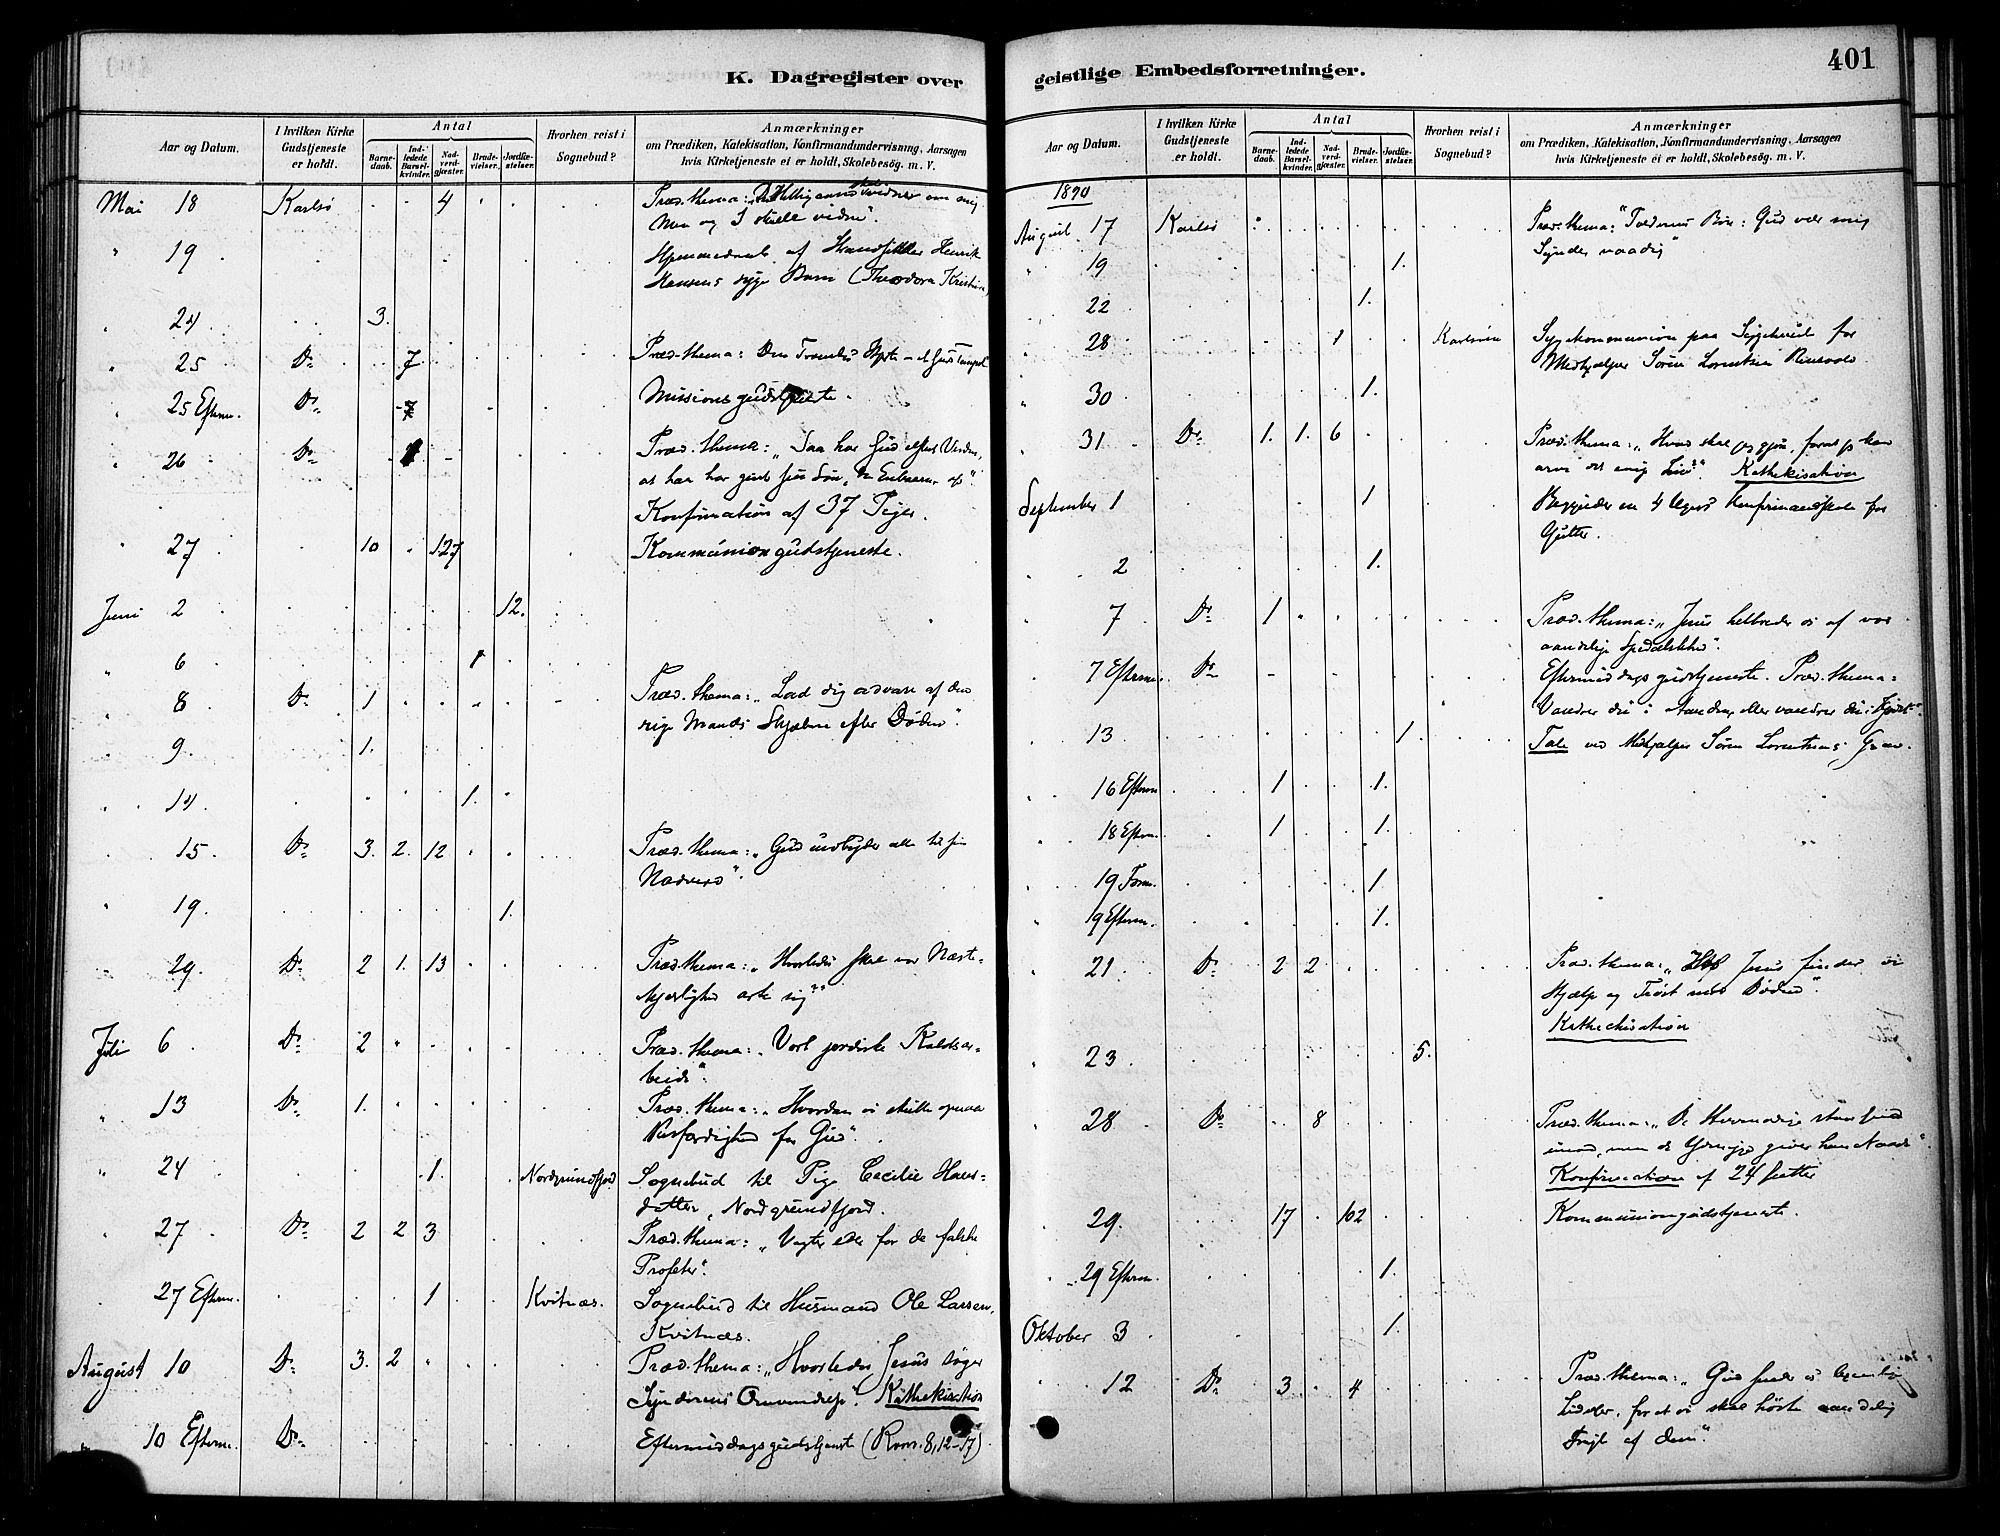 K. Dagregister over
Aar og Datum.
I hvilken Kirke Gudstjeneste er holdt.
Antal
Barnedaab.
Indledede Barselkvinder.
Nadverdgjæster.
Brudevielser.
Jordfæstelser.
Hvorhen reist i Sognebud?
Anmærkninger
om Prædiken, Katekisation, Konfirmandundervisning, Aarsagen
hvis Kirketjeneste ei er holdt, Skolebesög. m. V.
Mai 18 Karlsö 4 Præd. thema: om mig
Men og I skulle vidne".
" 19 Hjemmedaab af Strandsidder Henrik
Hansens syge Barn (Theodora Kristina)
" 24 3.
" 25 Do 7 Præd. thema: Den Hjerte - et Guds Tempel
" 25 Efterm. Do Missionsgudstjeneste.
" 26 Do Præd. thema: "Saa har Gud elsket Verden,
at han har givet sin Søn, den Enbaarne
Konfirmation af 37 Piger.
" 27 10 127 Kommuniongudstjeneste.
Juni 2 12.
" 6 1
" 8 Do 1 Præd. thema: "Lad dig advare af den
rige Mands Skjæbne efter Døden".
" 9 1.
" 14 1.
" 15. Do 3. 2. 12 Præd. thema: "Gud indbyder alle til sin
Nadverd".
" 19 1.
29. Do 2 1. 13 Præd. thema: "Hvorledes skal vor Næste-
kjærlighed arte sig?"
Juli 6 Do 2 Præd. thema: "Vort jordiske Kaldsar-
beide".
" 13 Do 1. Præd. thema: "Hvordan vi skulle opnaa
Retfærdighed for Gud".
" 24 1. Nordgrundfjord Sognebud til Pige Cecilie Hans-
datter, Nordgrundfjord.
" 27 Do 2 2 3 Præd. thema: "Vogter eder for de falske
Profeter".
27 Efterm. 1 Kvitnæs. Sognebud til Husmand Ole Larsen,
Kvitnæs.
August 10 Do 3. 2 Præd. thema: "Hvorledes Jesus søger
Synderens Omvendelse". Kathekisation
10 Efterm. Do Eftermiddagsgudstjeneste (Rom. 8, 12-17).
geistlige Embedsforretninger.
401
Aar og Datum.
I hvilken Kirke Gudstjeneste er holdt.
Antal
Barnedaab.
Indledede Barselkvinder.
Nadverdgjæster.
Brudevielser.
Jordfæstelser.
Hvorhen reist i Sognebud?
Anmærkninger
om Prædiken, Katekisation, Konfirmandundervisning, Aarsagen
hvis Kirketjeneste ei er holdt, Skolebesög. m. V.
1890
August 17 Karlsö Præd. thema: "Tolderens Bøn: Gud vær mig
Synder naadig"
" 19 1.
22 1.
" 28 1 Karlsöen Sygekommunion paa for
Medhjælper Sören Lorentsen
" 30 1.
31 Do 1. 1. 6 Præd. thema: "Hvad skal jeg gjøre, forat jeg kan
arve det evig Liv?" Kathekisation
September 1 1 Begynder en 4 Ugers Konfirmandskole for
Gutter.
2 1.
" 7 Do 1 Præd. thema: "Jesus helbreder os af vor
aandelige Spedalskhed".
7 Efterm. Do Eftermiddagsgudstjeneste. Præd. thema:
Vandrer du i Aanden, eller vandrer du i Kjødet".
13 1. Tale ved Medhjælper Sören Lorentsens Grav.
16 Efterm 1 1.
18 Efterm. 1 1.
19 Form. 1
19 Efterm. 1.
" 21 Do 2 2 Præd. thema: "Hos Jesus finder vi
Hjælp og Trøst mod Døden".
Kathechisation
" 23 5.
" 28 Do 8 Præd. thema: "De Hovmodige staar Gud
imod, men de Ydmyge giver han Naade".
Konfirmation af 24 Gutter
" 29. 17 102 Kommuniongudstjeneste.
29 Efterm. 1.
Oktober 3 1.
12 Do 3 4 Præd. thema: "Gud sender os
Lidelser, for at vi skal høste aandelig
Frugt af dem".